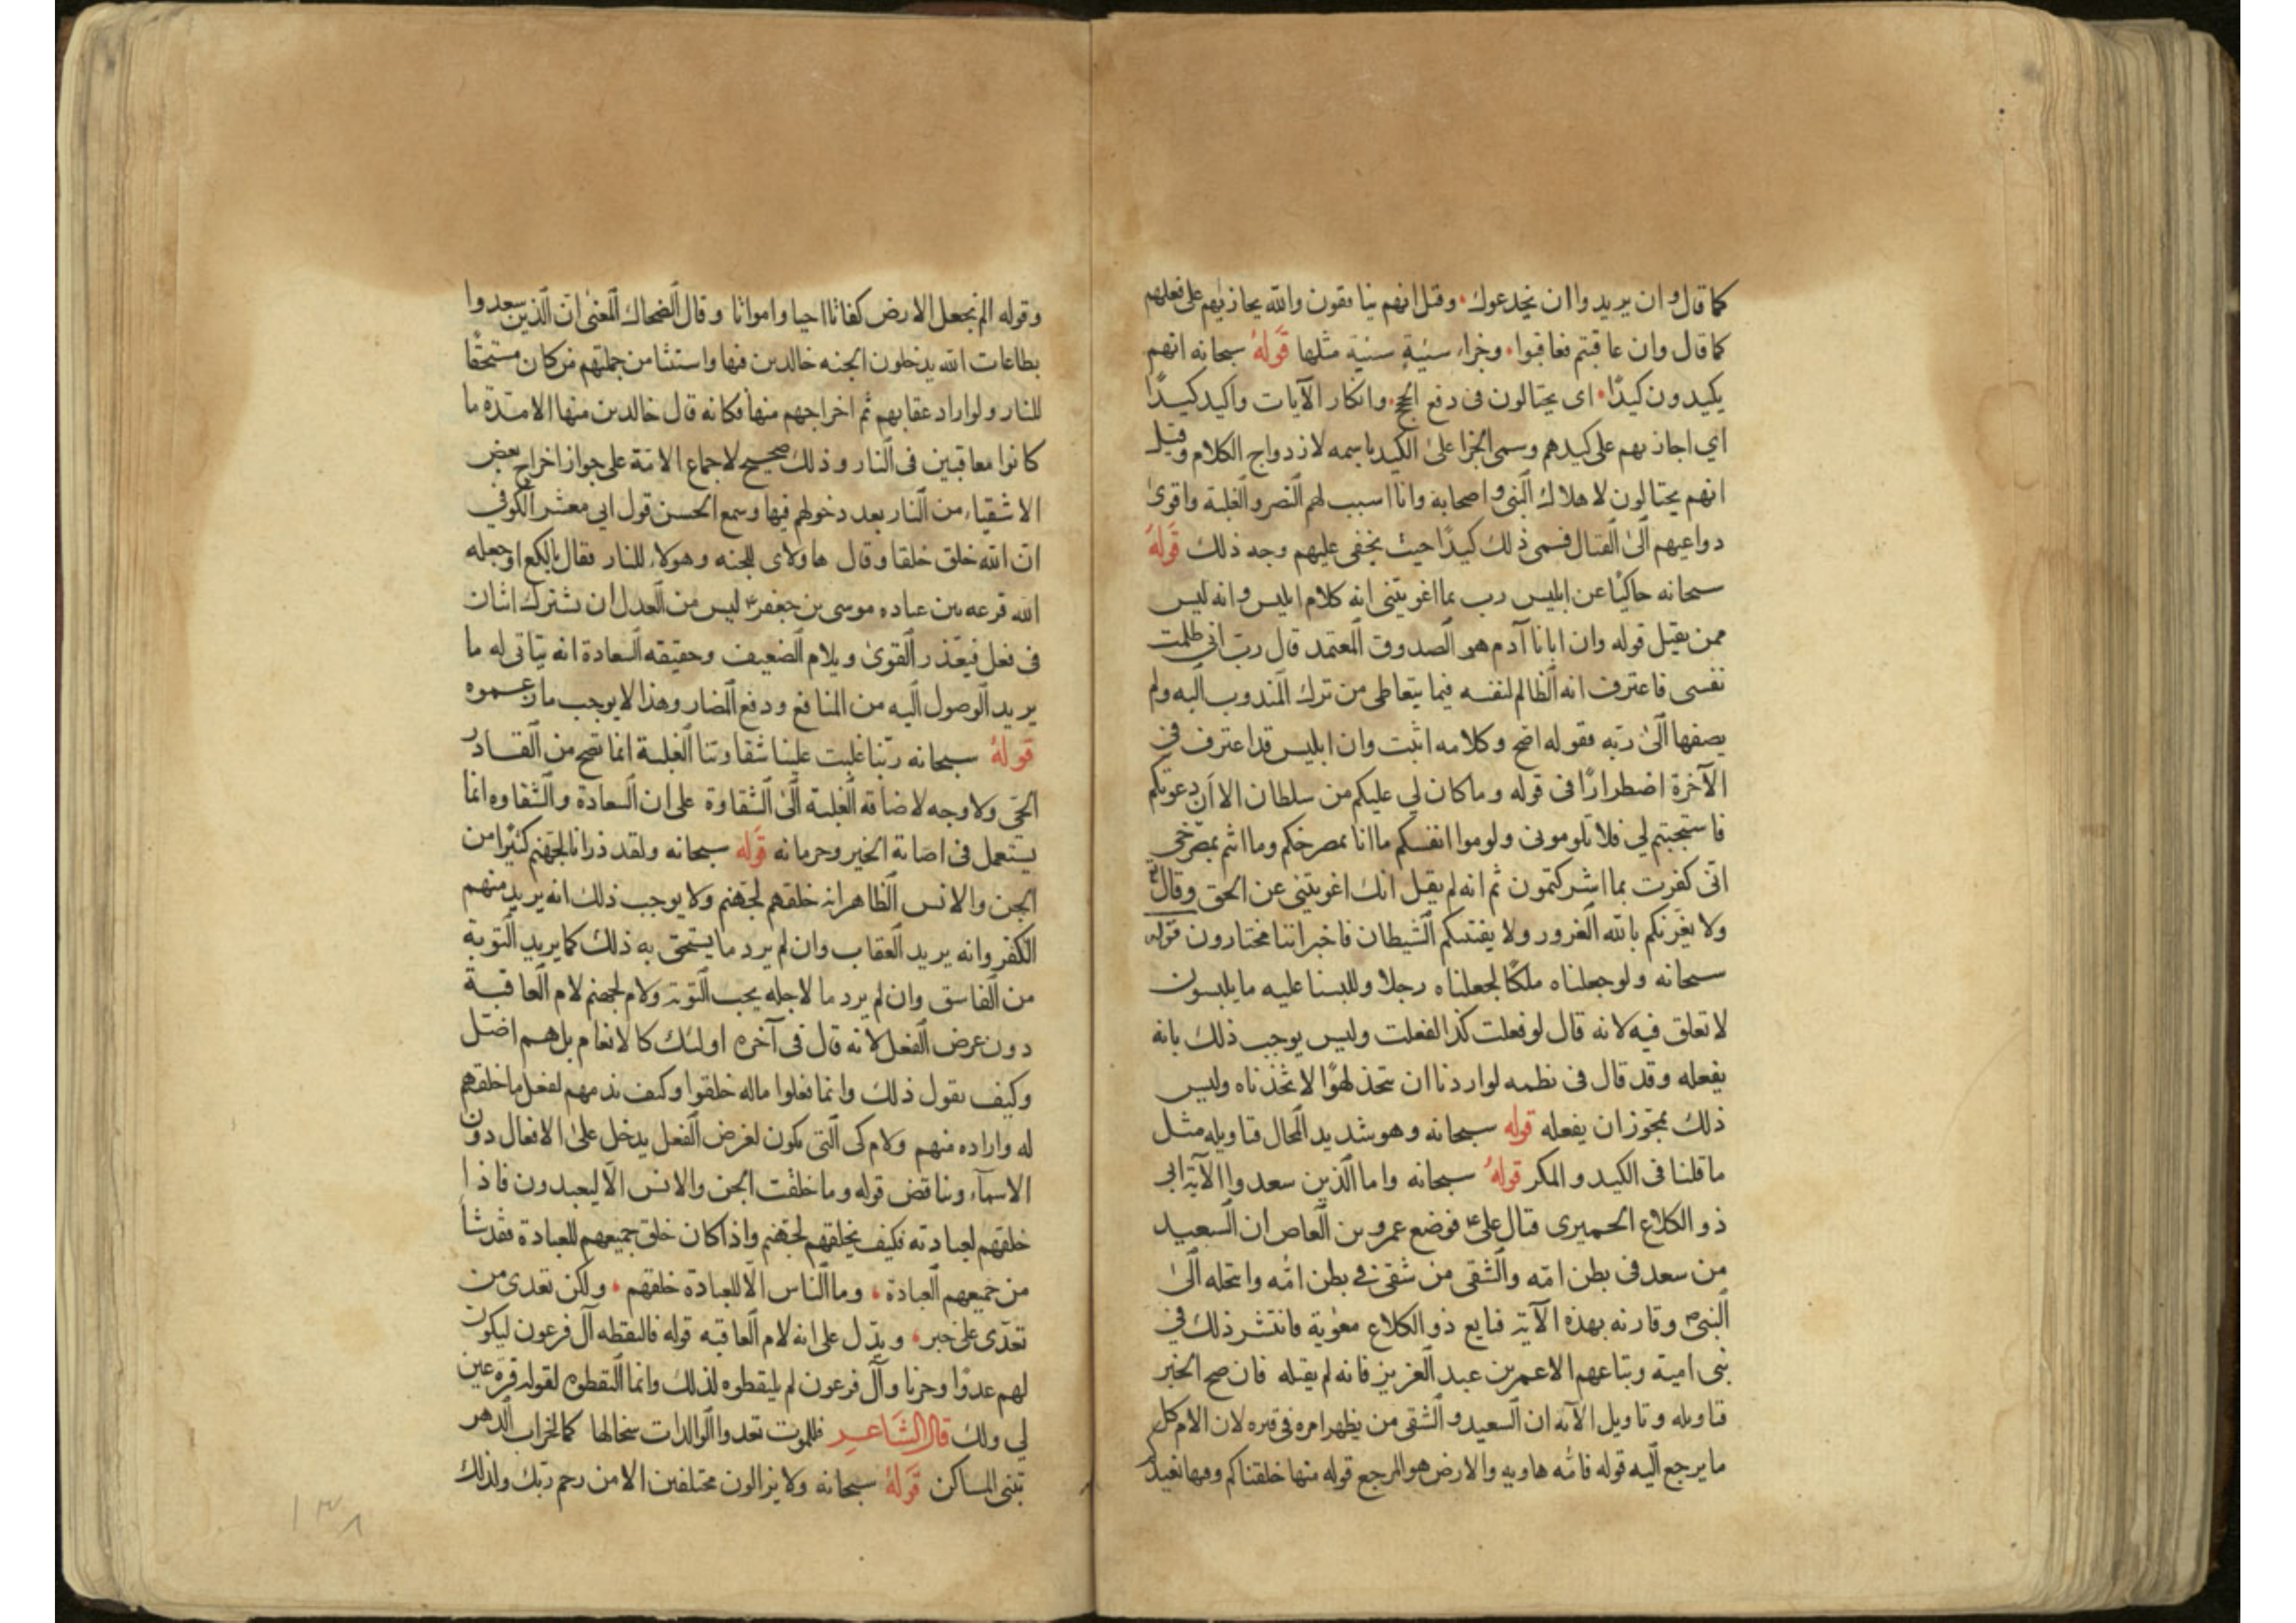 كما قال وان يريدوا ان يخدعوك وقيل انهم ينافقون والله يجازيهم على فعلهم
كما قال وان عاقبتم فعاقبوا وجزاء سيئة سيئة مثلها قوله سبحانه انهم
يكيدون كيدًا اى يحتالون فى دفع الحجج وانكار الآيات واكيد كيدًا
اي اجازيهم على كيدهم وسمى الجزا على الكيد باسمه لازدواج الكلام وقيل
انهم يحتالون لاهلاك النبى واصحابه وانا اسبب لهم النصر والغلبة واقوى
دواعيهم الى القتال فسمى ذلك كيدًا حيث يخفى عليهم وجه ذلك قوله
سبحانه حاكيًا عن ابليس رب بما اغويتنى انه كلام ابليس وانه ليس
ممن يقبل قوله وان ابانا آدم هو الصدوق المعتمد قال رب انى ظلمت
نفسى فاعترف انه الظالم لنفسه فيما يتعاطى من ترك المندوب اليه ولم
يصفها الى ربه فقوله اصح وكلامه اثبت وان ابليس قد اعترف في
الآخرة اضطرارًا فى قوله وما كان لي عليكم من سلطان الا ان دعوتكم
فاستجبتم لي فلا تلومونى ولوموا انفسكم ما انا بمصرخكم وما انتم بمصرخي
انى كفرت بما اشركتمون ثم انه لم يقل انك اغويتنى عن الحق وقال
ولا يغرنكم بالله الغرور ولا يفتننكم الشيطان فاخبر اننا مختارون قوله
سبحانه ولو جعلناه ملكًا لجعلناه رجلا وللبسنا عليه ما يلبسون
لا تعلق فيه لانه قال لو فعلت كذا لفعلت وليس يوجب ذلك بانه
يفعله وقد قال فى نظمه لو اردنا ان نتخذ لهوًا لاتخذناه وليس
ذلك بمجوز ان يفعله قوله سبحانه وهو شديد المحال فتاويله مثل
ما قلنا فى الكيد والمكر قوله سبحانه واما الذين سعدوا الآية ابى
ذو الكلاع الحميرى قتال على ع فوضع عمرو بن العاص ان السعيد
من سعد فى بطن امه والشقى من شقى فى بطن امه وانتحله الى
النبى ص وقارنه بهذه الآية فبايع ذو الكلاع معوية فانتشر ذلك في
بنى امية وتباعهم الا عمر بن عبد العزيز فانه لم يقبله فان صح الخبر
فتاويله وتاويل الآيه ان السعيد والشقى من يظهر امره فى قبره لان الام كل
ما يرجع اليه قوله فامه هاويه والارض هو المرجع قوله منها خلقناكم وفيها نعيدكم
وقوله الم نجعل الارض كفاتا احيا وامواتا وقال الضحاك المعنى ان الذين سعدوا
بطاعات الله يدخلون الجنه خالدين فيها واستثنا من جملتهم من كان مستحقًا
للنار ولو اراد عقابهم ثم اخراجهم منها فكانه قال خالدين منها الا مدة ما
كانوا معاقبين فى النار وذلك صحيح لاجماع الامة على جواز اخراج بعض
الاشقياء من النار بعد دخولهم فيها وسمع الحسن قول ابي معشر الكوفي
ان الله خلق خلقا وقال هاولاى للجنه وهولاء للنار فقال يا لكع اوجعله
الله قرعه بين عباده موسى بن جعفر ع ليس من العدل ان يشترك اثنان
فى فعل فيعذر القوى ويلام الضعيف وحقيقه السعادة انه يتاتى له ما
يريد الوصول اليه من المنافع ودفع المضار وهذا لا يوجب ما زعموه
قوله سبحانه ربنا غلبت علينا شقاوتنا الغلبة انما تصح من القادر
الحى ولا وجه لاضافة الغلبة الى الشقاوة على ان السعادة والشقاوه انما
يستعمل فى اصابة الخير وحرمانه قوله سبحانه ولقد ذرانا لجهنم كثيرًا من
الجن والانس الظاهر انه خلقهم لجهنم ولا يوجب ذلك انه يريد منهم
الكفر وانه يريد العقاب وان لم يرد ما يستحق به ذلك كما يريد التوبة
من الفاسق وان لم يرد ما لاجله يجب التوبة ولام لجهنم لام العاقبة
دون غرض الفعل لانه قال فى آخره اولئك كالانعام بل هم اضل
وكيف يقول ذلك وانما فعلوا ماله خلقوا وكيف يذمهم لفعل ما خلقهم
له واراده منهم ولام كى التى يكون لغرض الفعل يدخل على الافعال دون
الاسمآء ويناقض قوله وما خلقت الجن والانس الا ليعبدون فاذا
خلقهم لعبادته فكيف يخلقهم لجهنم واذا كان خلق جميعهم للعبادة فقد شا
من جميعهم العبادة وما الناس الا للعبادة خلقهم ولكن تعدى من
تعدى على خبر ويدل على انه لام العاقبه قوله فالتقطه آل فرعون ليكون
لهم عدوًا وحزنا وآل فرعون لم يلتقطوه لذلك وانما التقطوه لقوله قرة عين
لي ولك قال الشاعر فللموت تغدوا الوالدات سخالها كما لخراب الدهر
تبنى المساكن قوله سبحانه ولا يزالون مختلفين الا من رحم ربك ولذلك
١٣٨